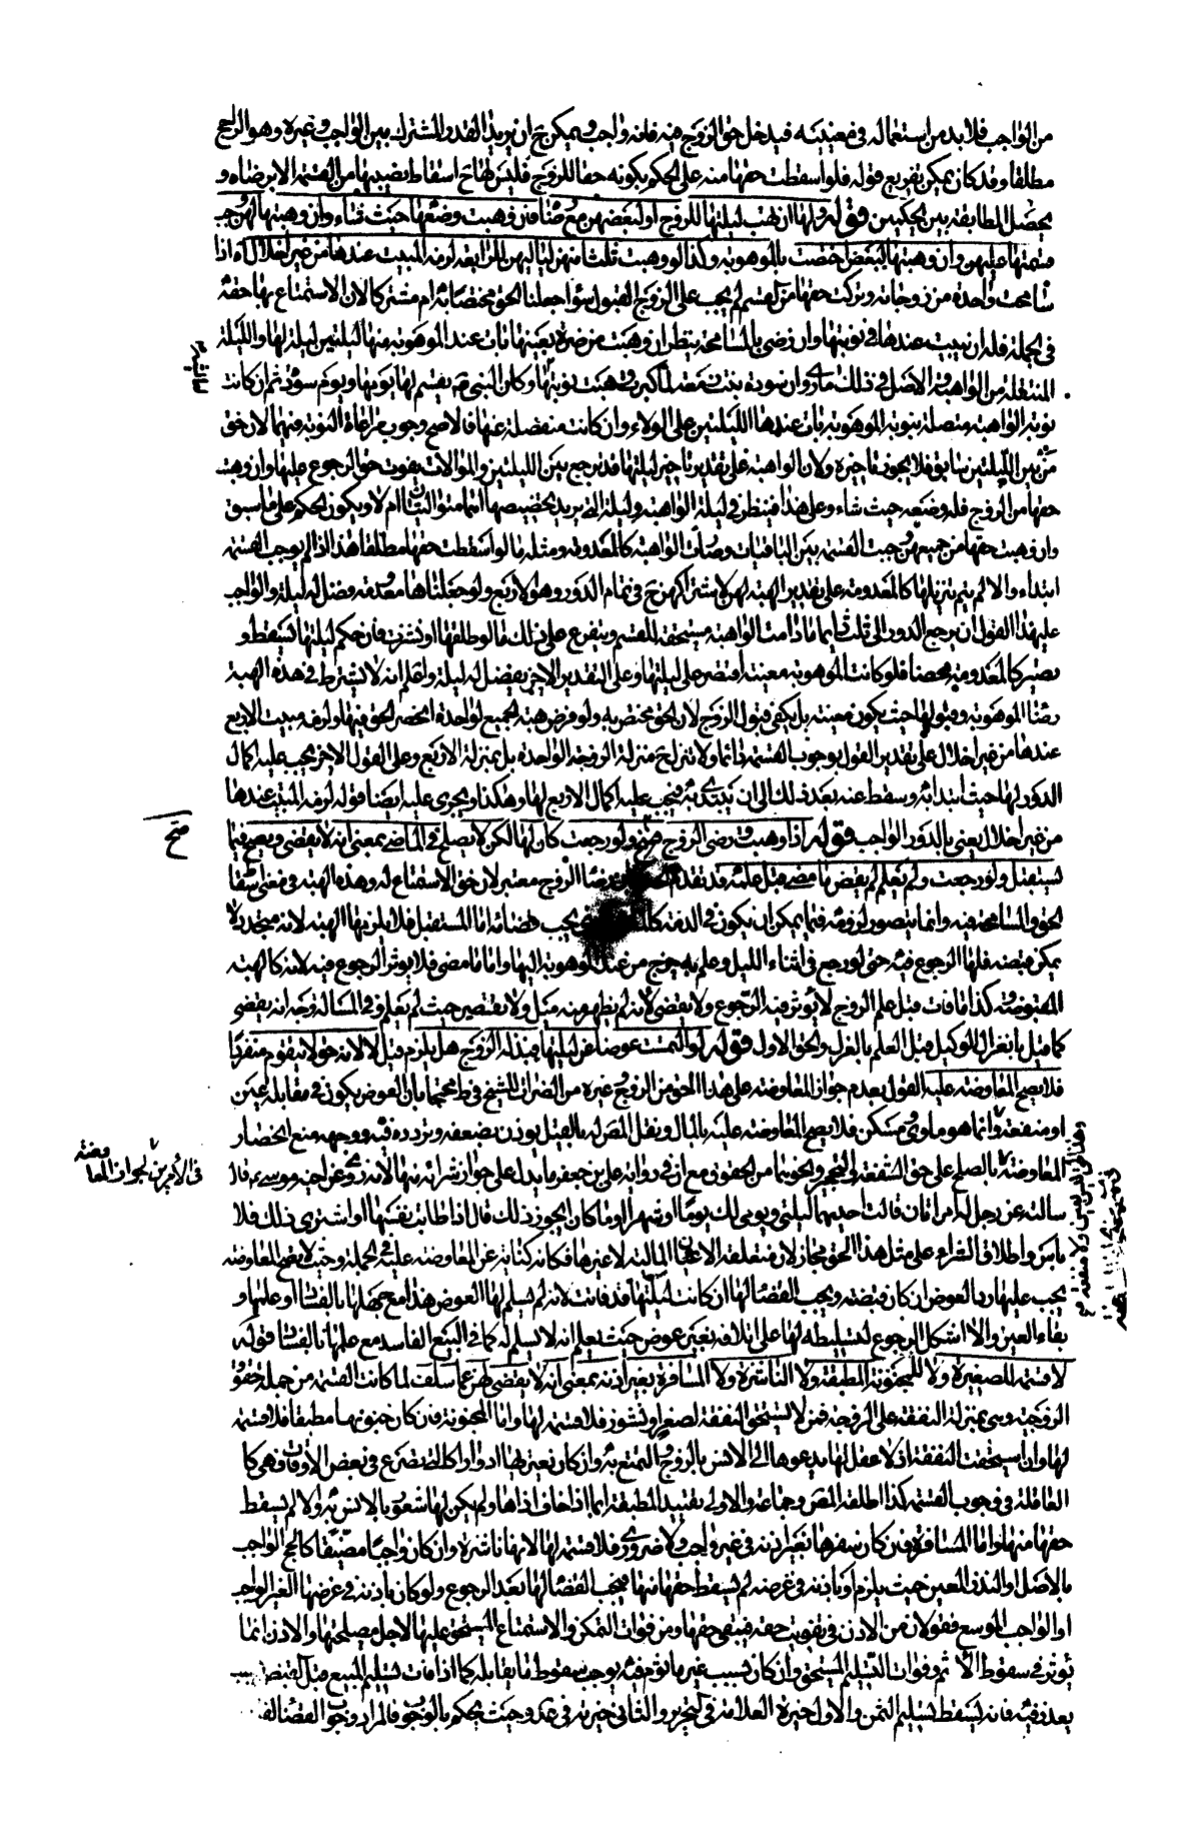 من الواجب فلا بد من استعماله في معنييه فيدخل حق الزوج فيه فانه واجب ويمكن ح ان يريد القدر المشترك بين الواجب وغيره وهو الراجح
مطلقا وقد كان يمكن تفريع قوله فلو اسقطت حقها منه على الحكم بكونه حقا للزوج فليس لها ح اسقاط نصيبها من القسمة الا برضاه و
يحصل المطابقة بين الحكمين قوله ولها ان تهب ليلتها للزوج او لبعضهن مع رضاه فان وهبت وضعها حيث شاء وان وهبتها لهن وجب
قسمتها عليهن وان وهبتها لبعض اختصت بالموهوبة وكذا لو وهبت ثلث منهن لياليهن للرابعة لزمه المبيت عندها من غير اخلال اذا
سامحت واحدة من زوجاته وتركت حقها من القسم لم يجب على الزوج القبول سواء جعلنا الحق مختصا به ام مشتركا لان الاستمتاع بها حقه
في الجملة فله ان يبيت عندها في نوبتها وان رضي بالمسامحة ينظر ان وهبت من ضرة بعينها بات عند الموهوبة منها ليلتين ليلة لها والليلة
المنتقلة من الواهبة والاصل في ذلك ما روي ان سودة بنت زمعة لما كبرت وهبت نوبتها وكان النبي يقسم لها يومها ويوم سودة ثم ان كانت
نوبة الواهبة متصلة بنوبة الموهوبة بات عندها الليلتين على الولاء وان كانت منفصلة عنها فالاصح وجوب مراعاة النوبة فيهما لان حق
من بين الليلتين سابق فلا يجوز تاخيره ولان الواهبة على تقدير تاخير ليلتها قد يرجع بين الليلتين والموالات يفوت حق الرجوع عليها وان وهبت
حقها من الزوج فله وضعه حيث شاء وعلى هذا فينظر في ليلة الواهبة وليلة التي يريد تخصيصها انهما متواليتان ام لا ويكون الحكم على ما سبق
وان وهبت حقها من جميعهن وجبت القسمة بين الباقيات وصارت الواهبة كالمعدومة ومثله ما لو اسقطت حقها مطلقا هذا اذا لم يوجب القسمة
ابتداء والا لم يتم تنزيلها كالمعدومة على تقدير الهبة لهن لاشتراكهن ح في تمام الدور وهو الاربع ولو جعلناها معدومة فضل له ليلة والواجب
على هذا القول ان يرجع الدور الى ثلث دائما ما دامت الواهبة مستحقة للقسم ويتفرع على ذلك ما لو طلقها او نشزت فان حكم ليلتها يسقط و
يصير كالمعدومة محضا فلو كانت الموهوبة معينة اقتصر على ليلتها وعلى التقدير الاخر يفضل له ليلة واعلم انه لا يشترط في هذه الهبة
رضا الموهوبة وقبولها حيث يكون معينة بل يكفي قبول الزوج لان الحق مختص به ولو فرض هبة الجميع لواحدة انحصر الحق فيها ولزمه مبيت الاربع
عندها من غير اخلال على تقدير القول بوجوب القسمة دائما ولا تنزل ح منزلة الزوجة الواحدة بل بمنزلة الاربع وعلى القول الاخر يجب عليه اكمال
الدور لها حيث ابتدا به وسقط عنه بعد ذلك الى ان يبتدي به فيجب عليه اكمال الاربع لها وهكذا ويجري عليه ايضا قوله لزمه المبيت عندها
من غير اخلال يعني بالدور الواجب قوله اذا وهبت ورضي الزوج صح ولو رجعت كان لها لكن لا يصلح في الماضي بمعنى انه لا يقضي ويصح فيما
يستقبل ولو رجعت ولم يعلم لم يقض ما مضى قبل علمه قد تقدم رضا الزوج معتبر لان حق الاستمتاع له وهذه الهبة في معنى اسقاط
الحق والمسامحة فيه وانما يتصور لزومه فيما يمكن ان يكون في الذمة يجب قضائه اما المستقبل فلا يلزمها الهبة لانه متجدد لا
يمكن قبضه فلها الرجوع فيه حتى لو رجع في اثناء الليل وعلم به خرج من عند الموهوبة اليها واما ما مضى فلا يؤثر الرجوع فيه لانه كالهبة
المقبوضة وكذا ما فات قبل علم الزوج لا يؤثر فيه الرجوع ولا يقضى لانه لم يظهر منه ميل ولا تقصير حيث لم يعلم وفي المسالة وجه انه يقضي
كما قيل بانعزال الوكيل قبل العلم بالعزل والحق الاول قوله لو التمست عوضا عن ليلتها فبذله الزوج هل يلزم قيل لا لانه حق لا يتقوم منفردا
فلا يصح المعاوضة عليه القول بعدم جواز المعاوضة على هذا الحق من الزوج وغيره من الضرات للشيخ في ط محتجا بان العوض يكون في مقابلة عين
او منفعة وانما هو ماوى ومسكن فلا يصح المعاوضة عليه بالمال ونقل المص له بالقيل يوذن بضعفه وتردده فيه ووجهه منع انحصار
المعاوضة بالصلح على حق الشفعة والتحجير ونحوهما من الحقوق مع ان في رواية علي بن جعفر ما يدل على جواز شرائه بها لانه روى عن اخيه موسى ع قال
سالته عن رجل له امراتان قالت احديهما ليلتي ويومي لك يوما او شهرا او ما كان ايجوز ذلك قال اذا طابت نفسها او اشترى ذلك فلا
باس واطلاق الشراء على مثل هذا الحق مجاز لان متعلقه الاعيان المالية لا غيرها فكانه كناية عن المعاوضة عليه في الجملة وحيث لا تصح المعاوضة
يجب عليها رد العوض ان كان قبضته ويجب القضاء لها ان كانت ليلتها قد فاتت لانه لم يسلم لها العوض هذا مع جهلها بالفساد او علمها و
بقاء العين والا اشكل الرجوع لتسليطه لها على اتلافه بغير عوض حيث يعلم انه لا يسلم له كما في البيع الفاسد مع علمهما بالفساد قوله
لا قسمة للصغيرة ولا للمجنونة المطبقة ولا الناشزة ولا المسافرة بغير اذنه بمعنى انه لا يقضي لهن عما سلف لما كانت القسمة من جملة حقوق
الزوجية وهي بمنزلة النفقة على الزوجة فمن لا يستحق النفقة لصغر او نشوز فلا قسمة لها واما المجنونة فان كان جنونها مطبقا فلا قسمة
لها وان استحقت النفقة اذ لا عقل لها يدعوها الى الانس بالزوج والتمتع به وان كان يعتريها ادوارا كالتي تصرع في بعض الاوقات فهي كا
لعاقلة في وجوب القسمة كذا اطلقه المص وجماعة والاولى تقييد المطبقة بما اذا خاف اذاها ولم يكن لها شعور بالانس به والا لم يسقط
حقها منها واما المسافرة فان كان سفرها بغير اذنه في غير واجب ولا ضروري فلا قسمة لها لانها ناشزة وان كان واجبا مضيقا كالحج الواجب
بالاصل او النذر المعين حيث يلزم او باذنه في غرضه لم يسقط حقها منها فيجب القضاء لها بعد الرجوع ولو كان باذنه في غرضها الغير الواجب
او الواجب الموسع فقولان من الاذن في تفويت حقه فيبقى حقها ومن فوات التمكن والاستمتاع المستحق عليها لاجل مصلحتها والاذن انما
يؤثر في سقوط الاثم وفوات التسليم المستحق وان كان بسبب غير ماثوم فيه يوجب سقوط ما يقابله كما اذا فات تسليم المبيع قبل القبض بسبب
يعذر فيه فانه يسقط تسليم الثمن والاول خيرة العلامة في التحرير والثاني خيرته في عد وحيث يحكم بالوجوب فالمراد وجوب القضاء
في الأمرين لجواز المعاوضة